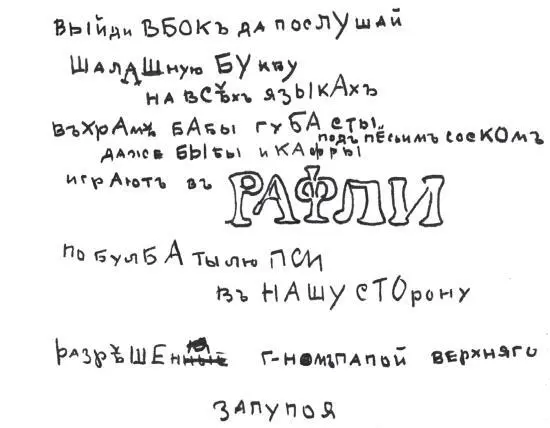 выйди ВБОКЪ да послУшАй
ШАЛАШную БУкву
НА ВСѢхъ ЯЗЫКАхЪ
ВЪ ХРАмѢ БАБЫ ГУБАСТЫ
ПОДЪ ПЁСЬИМЪ СОСКОМЪ
ДАЖЕ БЫБЫ И КАФРЫ
игрАютъ въ РАФЛИ
по булБАтылю ПСИ
ВЪ НАШУ СТОрону
рАЗРѢШЕНЯ Г-НОМЪ ПАПОЙ ВЕРХНЯГО
ЗАПУПОЯ